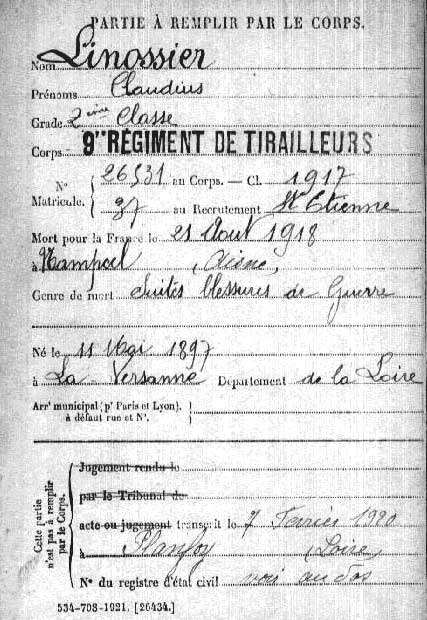 PARTIE À REMPLIR PAR LE CORPS.
Nom Linossier
Prénoms Claudius
Grade 2ème Classe
Corps 9e RÉGIMENT DE TIRAILLEURS
N° Matricule. 26531 au Corps. — Cl. 1917
37 au Recrutement St Etienne
Mort pour la France le 21 Aout 1918
à Nampcel (Aisne)
Genre de mort Suites blessures de Guerre
Né le 11 Mai 1897
à La Versanne Département de la Loire
Arrt municipal (pr Paris et Lyon),
à défaut rue et N°.
Cette partie
n'est pas à remplir
par le Corps.
Jugement rendu le
par le Tribunal de
acte ou jugement transcrit le 7 Février 1920
à Planfoy (Loire)
N° du registre d'état civil voir au dos
534-708-1921. [26434.]